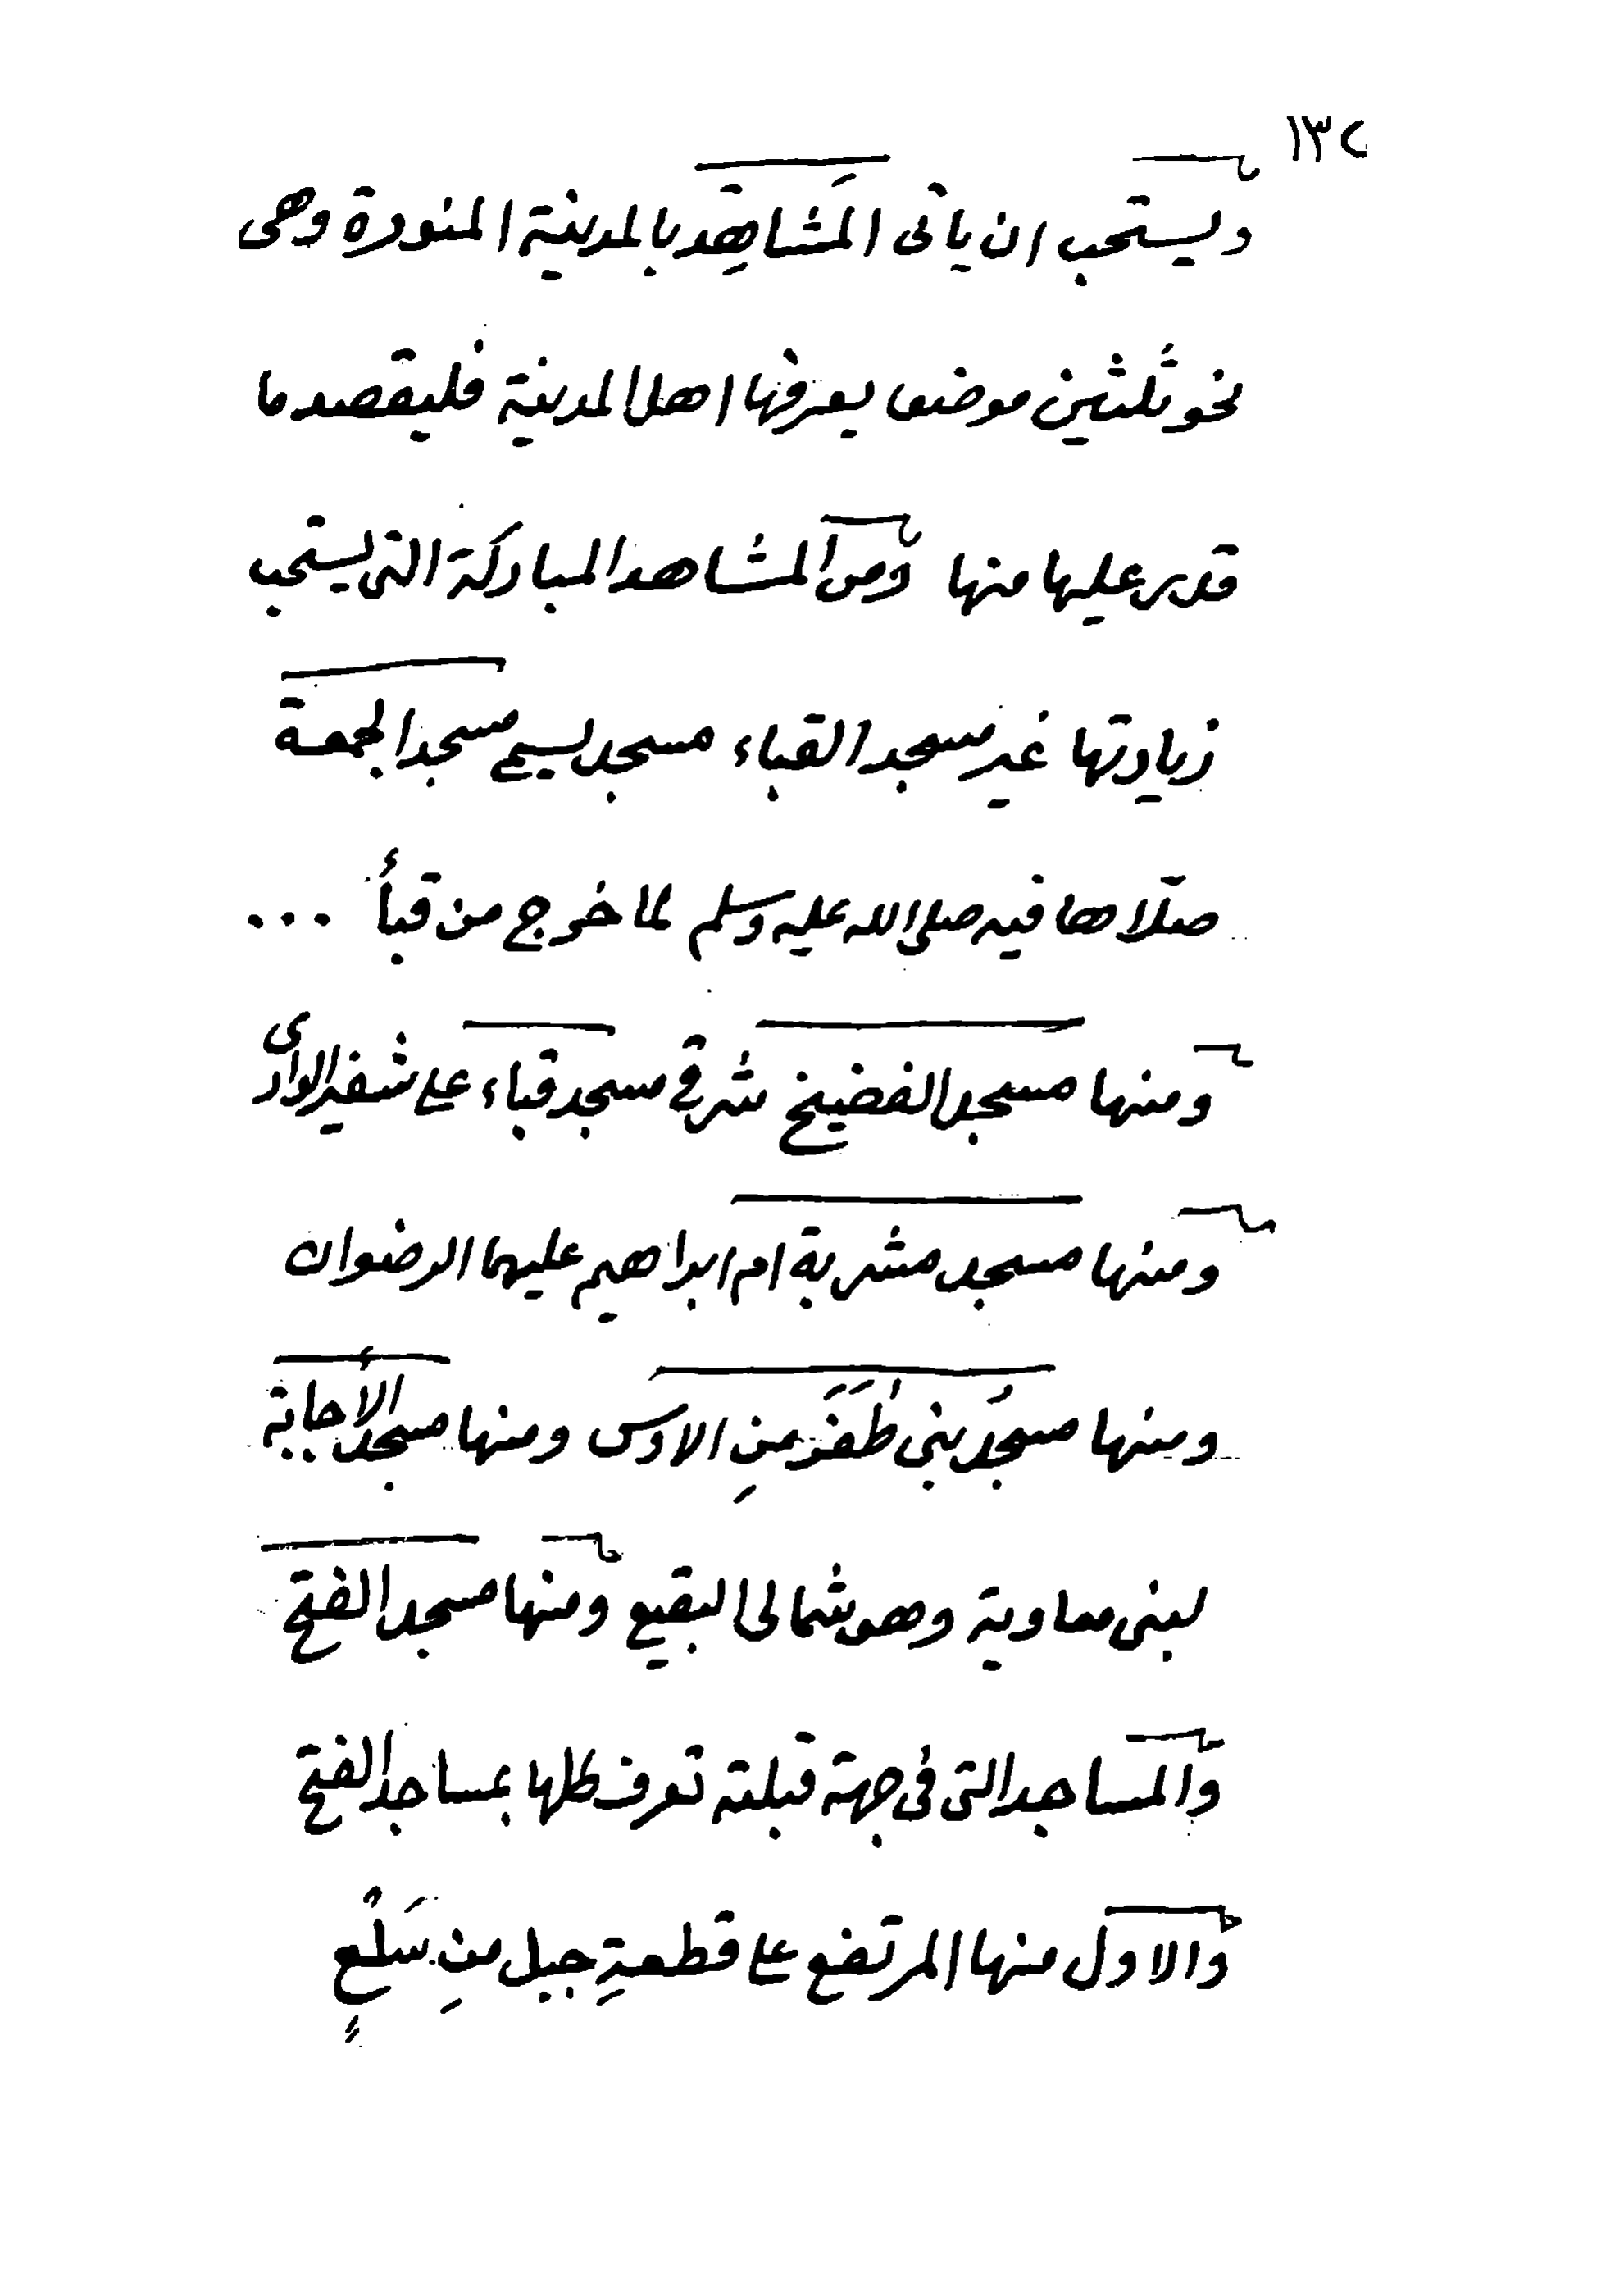 ١٣٢
ويستحب ان ياتى المَشاهِد بالمدينة المنورة وهى
نحو ثلثين موضعا يعرفها اهل المدينة فليقصد ما
قدر عليها منها ومن المشاهد المباركة التى يستحب
زيادتها غير مسجد القباء مسجد يسمى مسجد الجمعة
صلاها فيه صلى الله عليه وسلم لما خرج من قبأ ...
ومنها مسجد الفضيخ شرقى مسجد قباء على شفير الوادى
ومنها مسجد مشربة ام ابراهيم عليهما الرضوان
ومنها مسجدُ بنى ظَفَر منِ الاوس ومنها مسجد الأجابة
لبنى معاوية وهو شمالى البقيع ومنها مسجد الفتح
والمساجد التى فى جهة قبلته تعرف كلها بمساجد الفتح
والاول منها المرتفع على قطعةِ جبل منِ سَلْعٍ